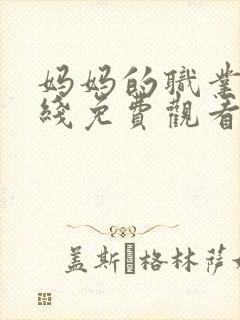 妈妈的職業
綫免費觀看
盖斯·格林萨